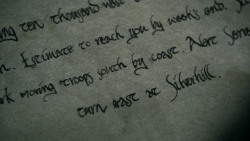 ng ten thousand
s. Estimate to reach you by week's end.
rk moving troops south by coast. Alert
turn east at Silverhill.